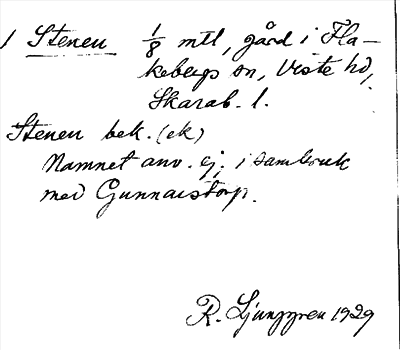 1 Stenen 1/8 mtl, gård i Fla-
kebergs sn, Viste hd,
Skarab. l.
Stenen bek. (ek)
Namnet anv. ej. i sambruk
med Gunnarstorp.
R. Ljunggren 1929